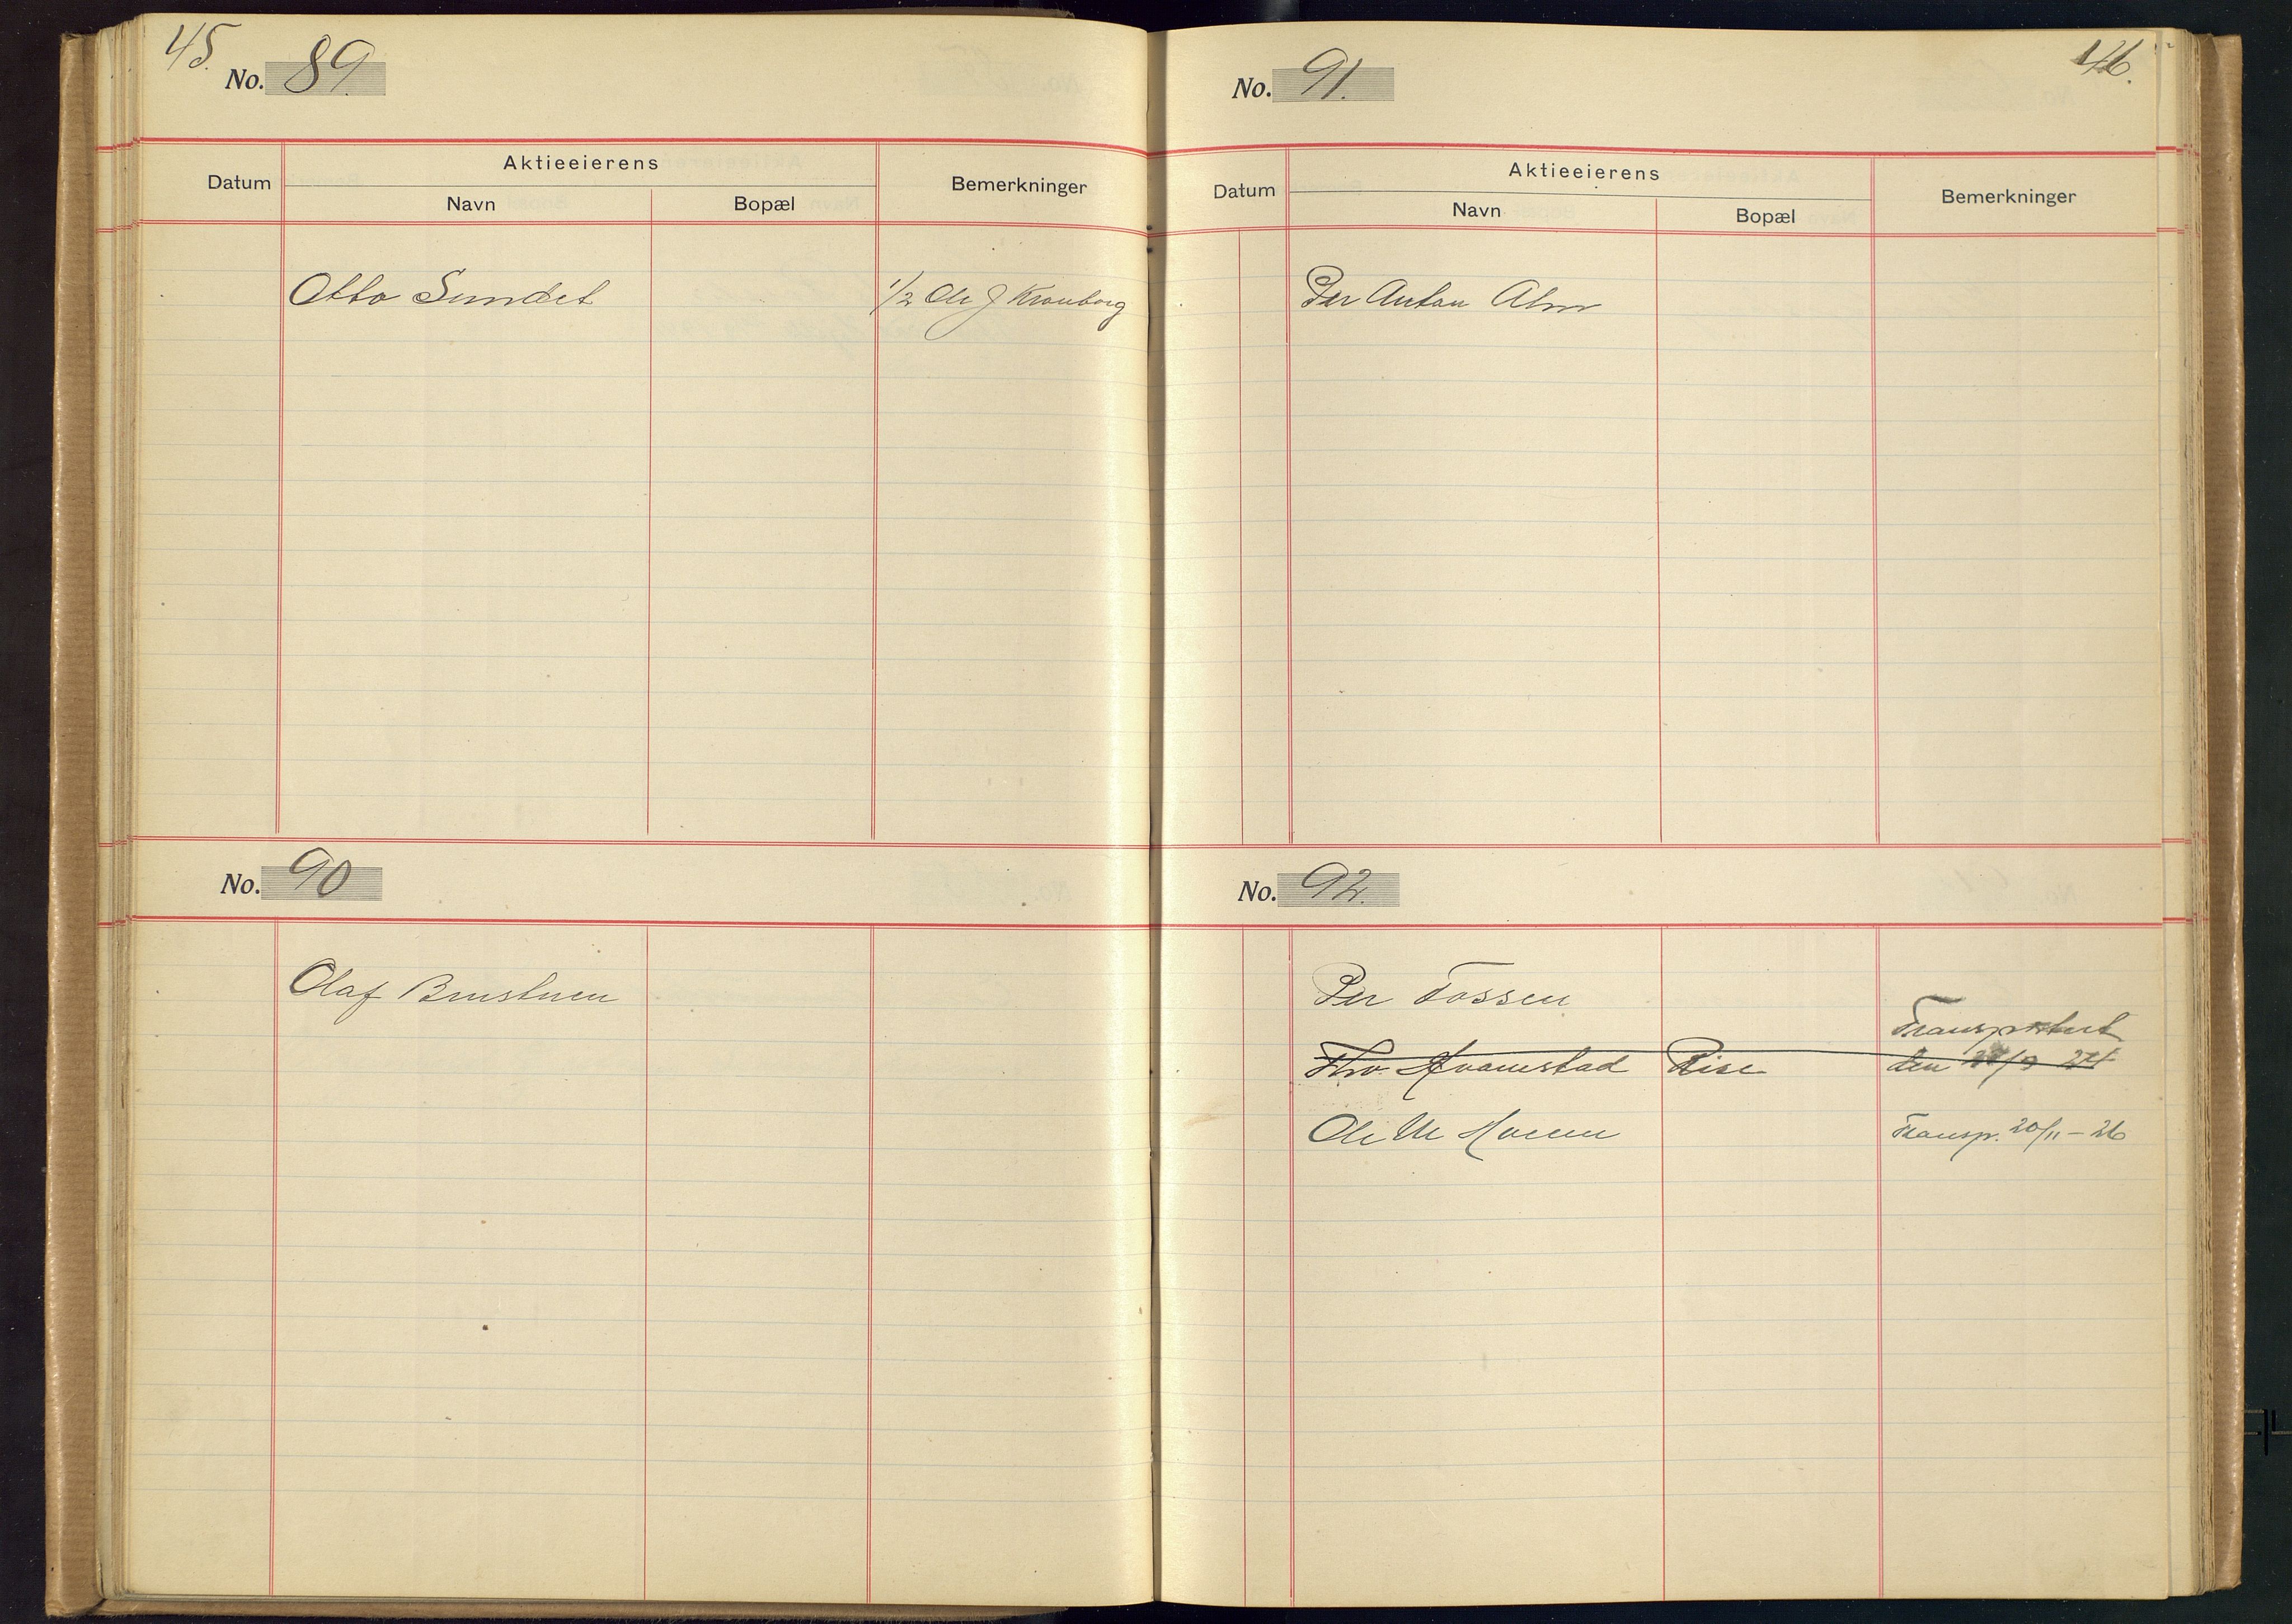 45.
No. 89.
Aktieeierens
Datum Navn Bopæl Bemerkninger
Otto Sundet 1/2 Ole J Kronborg
No. 90
Olaf Brustuen
46.
No. 91.
Aktieeierens
Datum Navn Bopæl Bemerkninger
Per Anton Alm
No. 92.
Per Fossen
Transportert
Thv. Kvamstad Rise den 24
Ole M Hoven Transp. 20/11 - 26